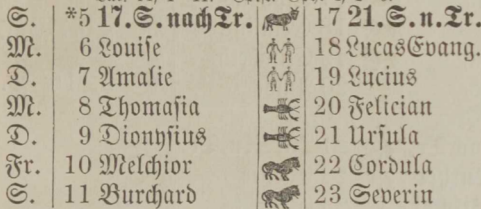 S. *5 17.S.nachTr. 17 21.S.n.Tr.
M. 6 Louise 18 LucasEvang.
D. 7 Amalie 19 Lucius
M. 8 Thomasia 20 Felician
D. 9 Dionysius 21 Ursula
Fr. 10 Melchior 22 Cordula
S. 11 Burchard 23 Severin